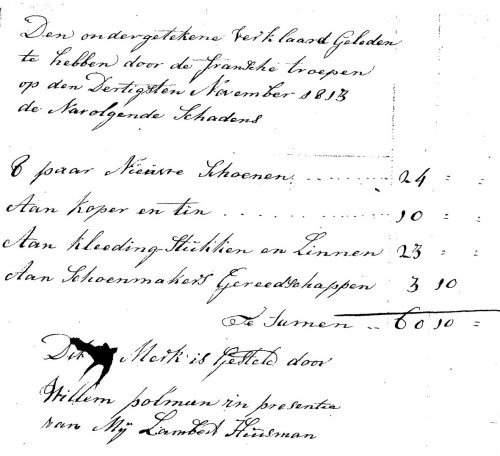 Den ondergetekene Verklaard Geleden
te hebben door de fransche troepen
op den Dertigsten November 1813
de Navolgende Schadens
6 paar Nieuwe Schoenen .......... 24 = =
Aan koper en tin .......... 10 = =
Aan kleeding Stukken en Linnen 23 = =
Aan Schoenmakers Gereedschappen 3 10
Te Samen .. 60 10 =
Dit Merk is Gesteld door
Willem polman in presentie
van Mij Lambert Huisman